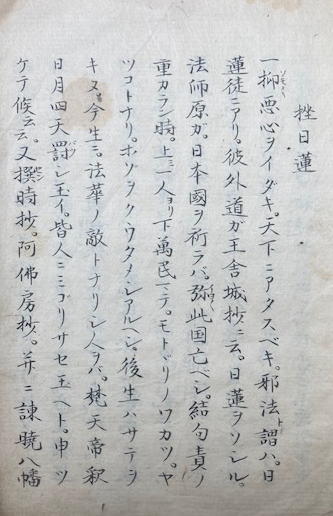 挫日蓮
一抑悪心ヲイダキ。天下ニアタスベキ。邪法ト謂ハ。日
蓮徒ニアリ。彼外道ガ王舎城抄ニ云。日蓮ヲソシル。
法師原ガ。日本國ヲ祈ラバ。弥此国亡ベシ。結句責ノ
重カラン時。上ミ一人ヨリ下萬民ニテ。モトドリノワカツ。ヤ
ツコトナリ。ホゾヲクウタメシアルベシ。後生ハサテヲ
キヌ今生ニ。法華ノ敵トナリシ人ヲバ。梵天帝釈
日月四天罰シ玉イ。皆人ニミゴリサセ玉ヘト。申ツ
ケテ候云云。又撰時抄。阿佛房抄。并ニ諌暁八幡